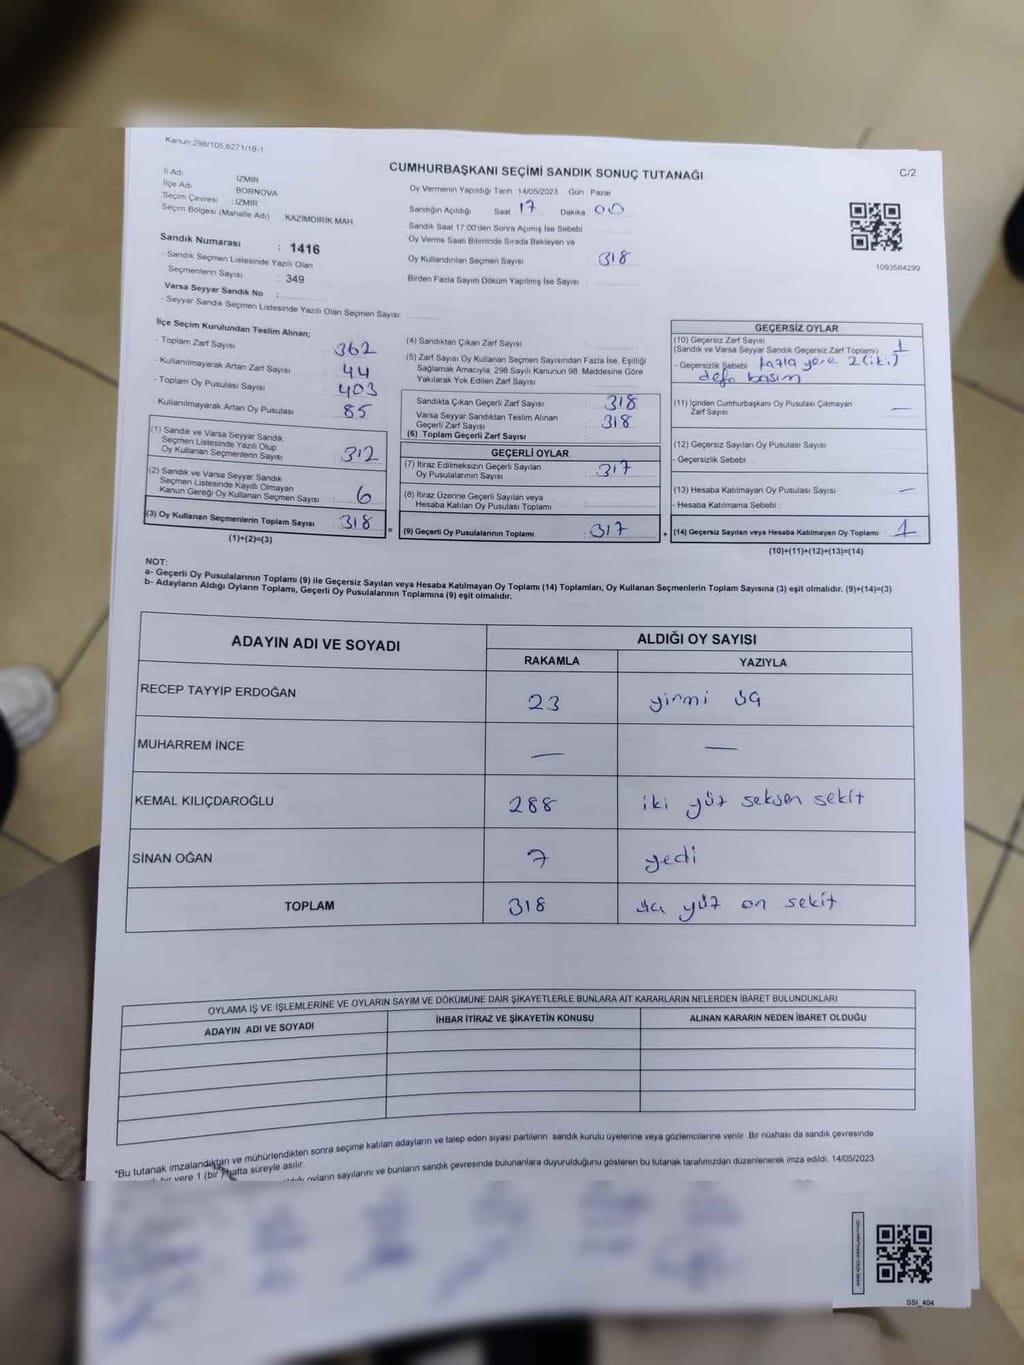 Kanun:298/105,6271/18-1
CUMHURBAŞKANI SEÇİMİ SANDIK SONUÇ TUTANAĞI
C/2
İl Adı : İZMİR
İlçe Adı : BORNOVA
Seçim Çevresi : İZMİR
Seçim Bölgesi (Mahalle Adı) KAZIMDİRİK MAH
Sandık Numarası : 1416
- Sandık Seçmen Listesinde Yazılı Olan
Seçmenlerin Sayısı : 349
Varsa Seyyar Sandık No :
- Seyyar Sandık Seçmen Listesinde Yazılı Olan Seçmen Sayısı :
Oy Vermenin Yapıldığı Tarih 14/05/2023 Gün Pazar
Sandığın Açıldığı Saat 17 Dakika 00
Sandık Saat 17.00'den Sonra Açılmış İse Sebebi
Oy Verme Saati Bitiminde Sırada Bekleyen ve
Oy Kullandırılan Seçmen Sayısı : 318
Birden Fazla Sayım Döküm Yapılmış İse Sayısı :
1093584299
İlçe Seçim Kurulundan Teslim Alınan;
- Toplam Zarf Sayısı 362
- Kullanılmayarak Artan Zarf Sayısı 44
- Toplam Oy Pusulası Sayısı 403
- Kullanılmayarak Artan Oy Pusulası 85
(1) Sandık ve Varsa Seyyar Sandık
Seçmen Listesinde Yazılı Olup
Oy Kullanan Seçmenlerin Sayısı 312
(2) Sandık ve Varsa Seyyar Sandık
Seçmen Listesinde Kayıtlı Olmayan
Kanun Gereği Oy Kullanan Seçmen Sayısı : 6
(3) Oy Kullanan Seçmenlerin Toplam Sayısı 318 =
(1)+(2)=(3)
(4) Sandıktan Çıkan Zarf Sayısı
(5) Zarf Sayısı Oy Kullanan Seçmen Sayısından Fazla İse, Eşitliği
Sağlamak Amacıyla, 298 Sayılı Kanunun 98. Maddesine Göre
Yakılarak Yok Edilen Zarf Sayısı
Sandıkta Çıkan Geçerli Zarf Sayısı 318
Varsa Seyyar Sandıktan Teslim Alınan
Geçerli Zarf Sayısı 318
(6) Toplam Geçerli Zarf Sayısı
GEÇERLİ OYLAR
(7) İtiraz Edilmeksizin Geçerli Sayılan
Oy Pusulalarının Sayısı : 317
(8) İtiraz Üzerine Geçerli Sayılan veya
Hesaba Katılan Oy Pusulası Toplamı
(9) Geçerli Oy Pusulalarının Toplamı 317 +
GEÇERSİZ OYLAR
(10) Geçersiz Zarf Sayısı
(Sandık ve Varsa Seyyar Sandık Geçersiz Zarf Toplamı) 1
- Geçersizlik Sebebi fazla yere 2 (iki)
defa basım
(11) İçinden Cumhurbaşkanı Oy Pusulası Çıkmayan
Zarf Sayısı —
(12) Geçersiz Sayılan Oy Pusulası Sayısı
- Geçersizlik Sebebi :
(13) Hesaba Katılmayan Oy Pusulası Sayısı —
- Hesaba Katılmama Sebebi :
(14) Geçersiz Sayılan veya Hesaba Katılmayan Oy Toplamı : 1
(10)+(11)+(12)+(13)=(14)
NOT:
a- Geçerli Oy Pusulalarının Toplamı (9) ile Geçersiz Sayılan veya Hesaba Katılmayan Oy Toplamı (14) Toplamları, Oy Kullanan Seçmenlerin Toplam Sayısına (3) eşit olmalıdır. (9)+(14)=(3)
b- Adayların Aldığı Oyların Toplamı, Geçerli Oy Pusulalarının Toplamına (9) eşit olmalıdır.
ADAYIN ADI VE SOYADI ALDIĞI OY SAYISI
RAKAMLA YAZIYLA
RECEP TAYYİP ERDOĞAN 23 yirmi üç
MUHARREM İNCE — —
KEMAL KILIÇDAROĞLU 288 iki yüz seksen sekiz
SİNAN OĞAN 7 yedi
TOPLAM 318 üç yüz on sekiz
OYLAMA İŞ VE İŞLEMLERİNE VE OYLARIN SAYIM VE DÖKÜMÜNE DAİR ŞİKAYETLERLE BUNLARA AİT KARARLARIN NELERDEN İBARET BULUNDUKLARI
ADAYIN ADI VE SOYADI İHBAR İTİRAZ VE ŞİKAYETİN KONUSU ALINAN KARARIN NEDEN İBARET OLDUĞU
*Bu tutanak imzalandıktan ve mühürlendikten sonra seçime katılan adayların ve talep eden siyasi partilerin sandık kurulu üyelerine veya gözlemcilerine verilir. Bir nüshası da sandık çevresinde
bir yere 1 (bir) hafta süreyle asılır.
oyların sayılarını ve bunların sandık çevresinde bulunanlara duyurulduğunu gösteren bu tutanak tarafımızdan düzenlenerek imza edildi. 14/05/2023
SSI_404